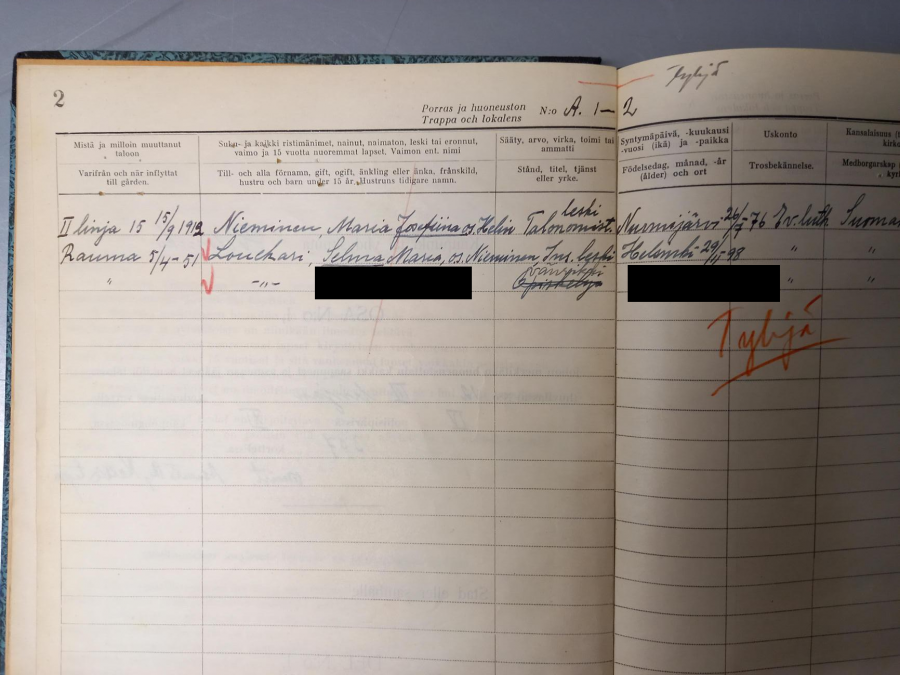 2
Tyhjä
Porras ja huoneuston
Trappa och lokalens
N:o A. 1-2
Mistä ja milloin muuttanut taloon
Suku- ja kaikki ristimänimet, nainut, naimaton, leski tai eronnut,
vaimo ja 15 vuotta nuoremmat lapset. Vaimon ent. nimi
Sääty, arvo, virka, toimi tai ammatti
Syntymäpäivä, -kuukausi
-vuosi (ikä) ja -paikka
Uskonto
Kansalaisuus
Varifrån och när inflyttat till gården.
Till- och alla förnamn, gift, ogift, änkling eller änka, frånskild,
hustru och barn under 15 år. Hustruns tidigare namn.
Stånd, titel, tjänst eller yrke.
Födelsedag, månad, -år
(ålder) och ort
Trosbekännelse.
Medborgarskap
II linja 15 15/9 1912 Nieminen, Maria Josefiina os. Helin Talonomist. leski Nurmijärvi 26/ 76 Ev. luth Suoma
Rauma 5/4-51 Louekari, Selma Maria, os. Nieminen Ins. leski Helsinki 29/ 98 " "
" -"- Opiskelija " "
Tyhjä